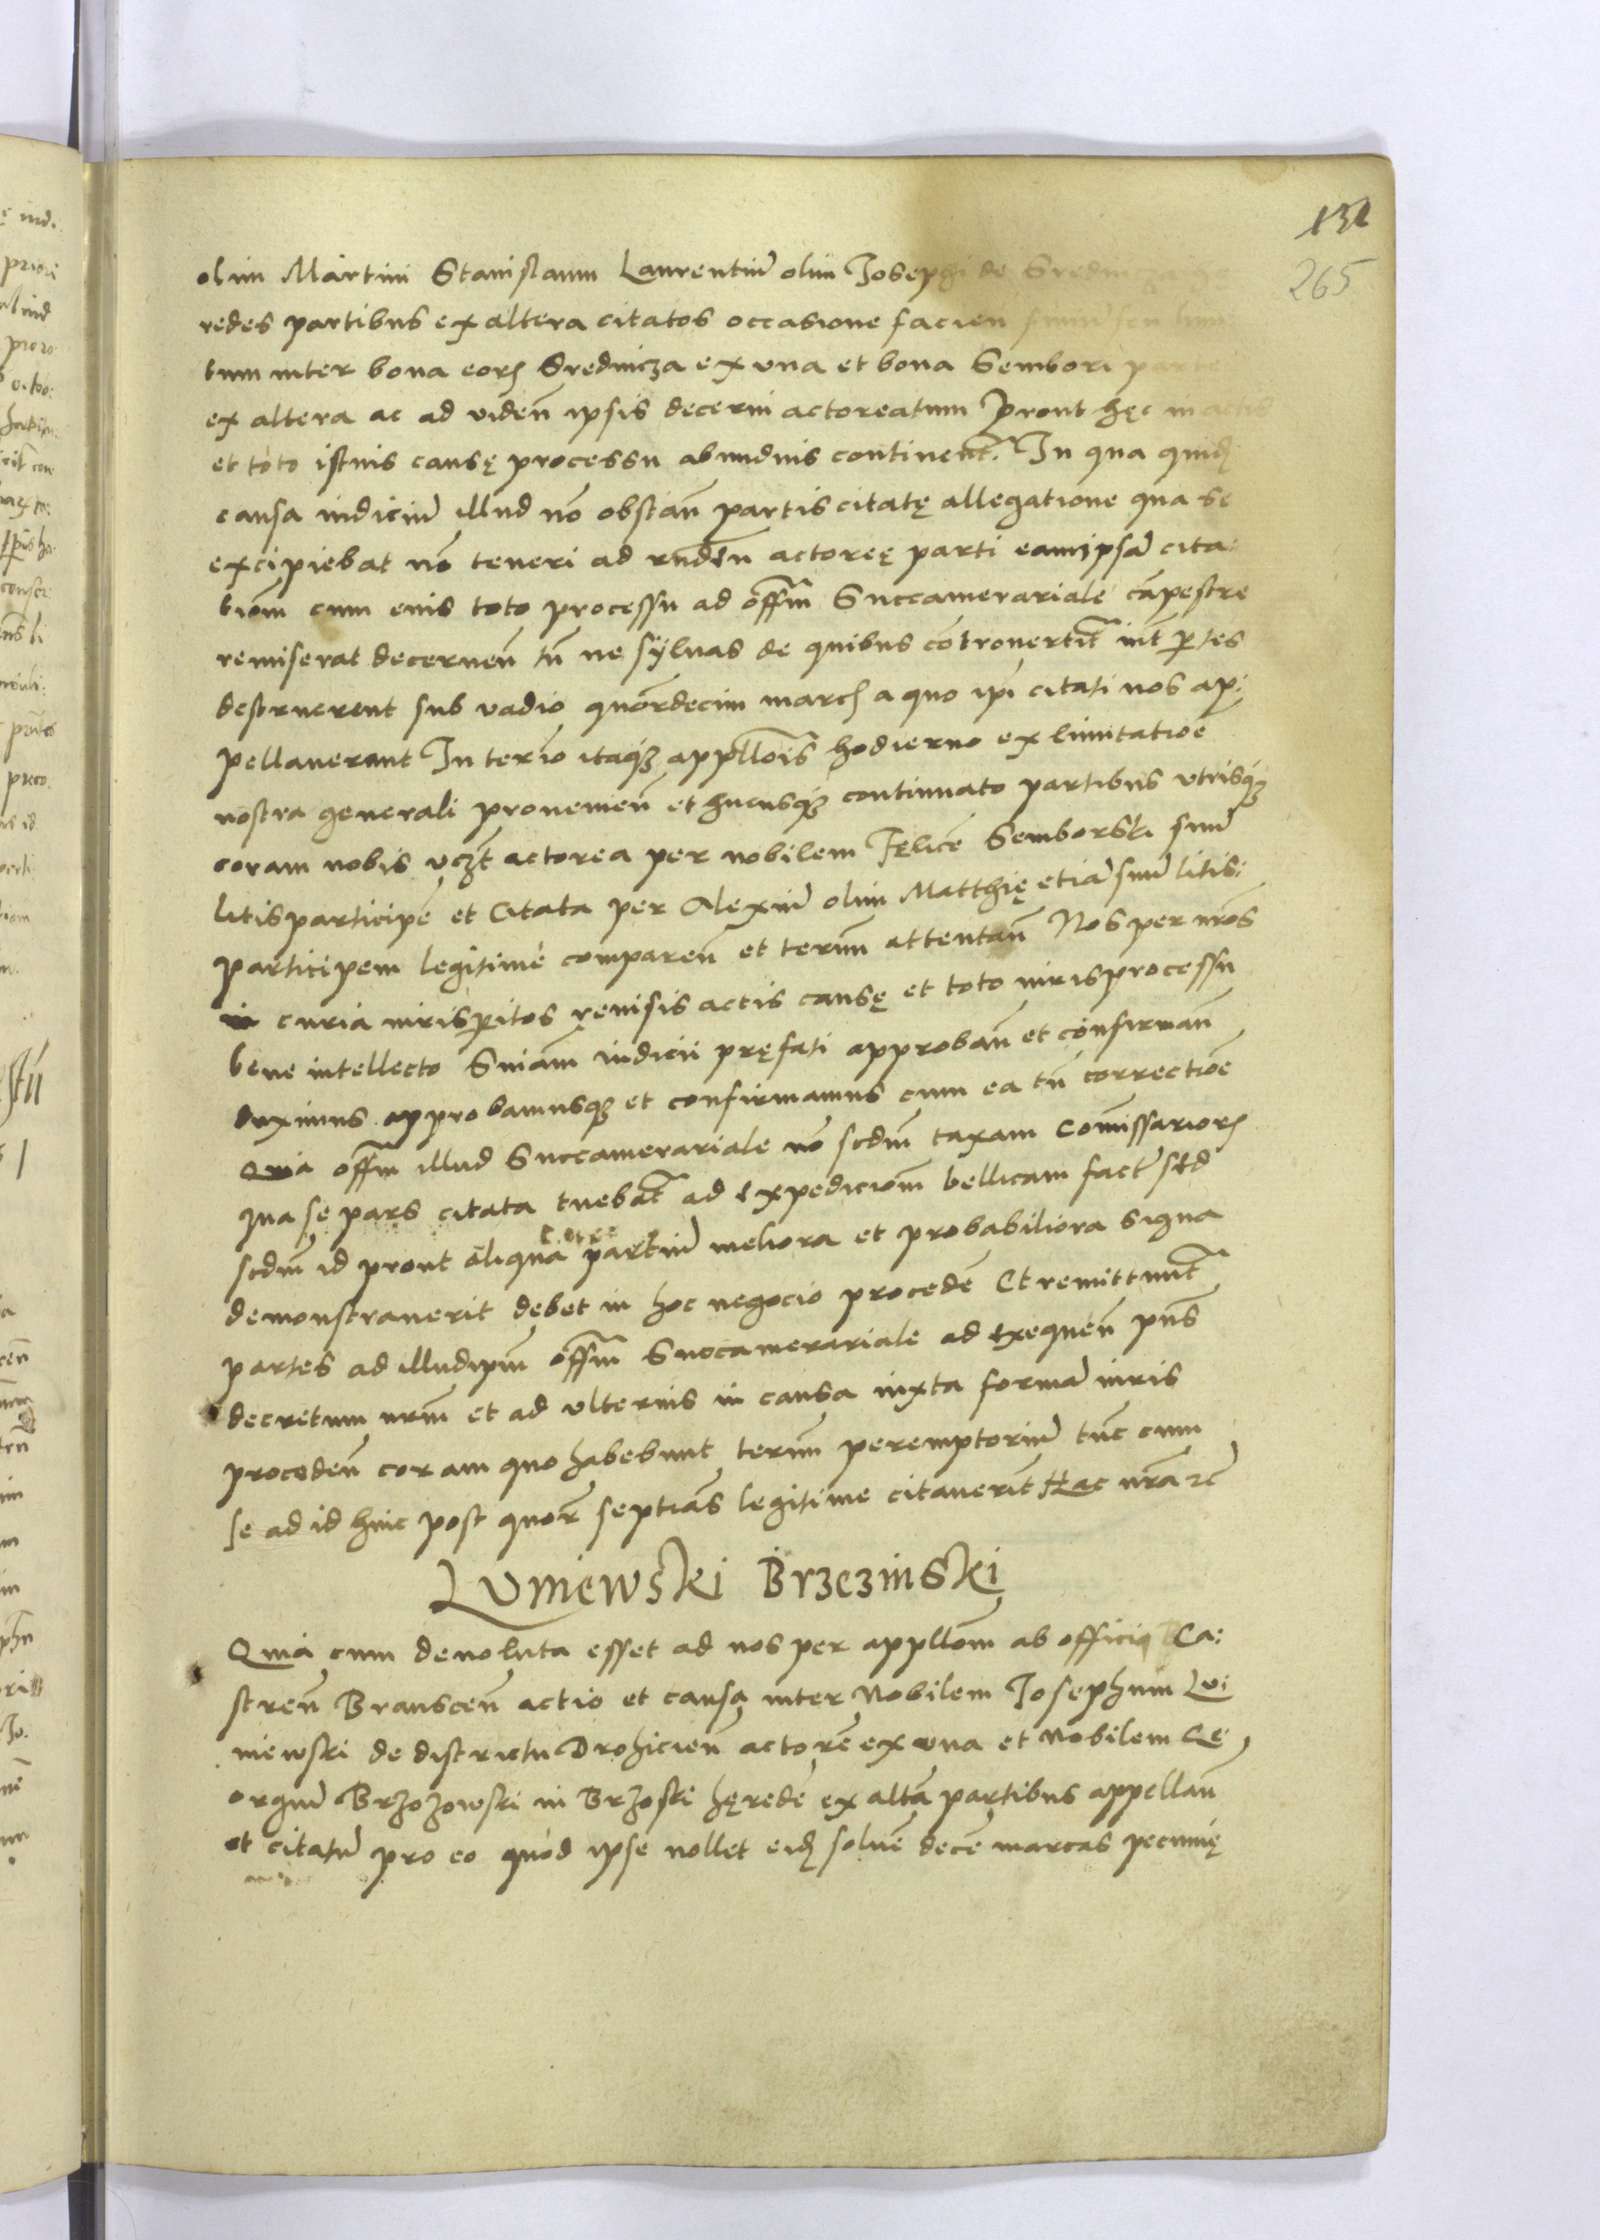 132
265
olim Martini Stanislaum Laurentiū olim Josephi de Sredni
redes partibus ex altera citatos occasione facien
tum inter bona eorꝭ Srednicza ex una et bona Sembori parte
ex altera ac ad viden̄ ipsis decerni actoreatum Prout hęc in actis
et toto istius causę processu abundius continent̄. In qua quidē
causa iudiciū illud nō obstan̄ partis citatę allegatione qua se
excipiebat nō teneri ad rn̄den̄ actoreę parti eam ipsā cita:
tiom̄ cum eius toto processu ad offm̄ Succamerariale cāpestre
remiserat decernen̄ tn̄ ne sÿluas de quibus cōtrouertit̄ int̄ ꝑtes
destruerent sub vadio quōrdecim marcꝭ a quo ip̄i citati nos ap:
pellauerant In ter̄io itaqꝫ appllōis hodierno ex limitatiōe
nostra generali prouenien̄ et hucusqꝫ continuato partibus utrisqꝫ
coram nobis uczt̄ actorea per nobilem Fęlicē Semborski suū
litisparticipē et Citata per Alexiū olim Matthię etiā suū litis:
participem legitime comparen̄ et term̄ attentan̄ Nos per nr̄os
curia iurisꝑitos reuisis actis causę et toto iuris processu
bene intellecto Sn̄iam̄ iudicii pręfati approban̄ et confirman̄
duximus approbamusqꝫ et confirmamus cum ea tn̄ correctiōe
Quia offm̄ illud Succamerariale nō scdm̄ taxam Comissariorꝭ
qua se pars citata tuebat̄ ad Expediciom̄ bellicam factā sed
scdm̄ id prout aliqua partiū meliora et probabiliora signa
demonstrauerit debet in hoc negocio procedē Et remittunt̄
partes ad illud ip̄m offm̄ Succamerariale ad exequen̄ pn̄s
decretum nrm̄ et ad ulterius in causa iuxta formā iuris
proceden̄ coram quo habebunt term̄ peremptoriū tūc cum
se ad id hinc post quōr septiās legitime citauerīt Hac nrā ꝛc̄
Luniewski Brzezinski
Quia cum deuoluta esset ad nos per appllom̄ ab officio Ca:
stren̄ Branscen̄ actio et causa inter Nobilem Josephum Lui
niewski de districtu Drohicien̄ actorē ex una et Nobilem Ge
orgiū Brzozowski in Brzoski hęredē ex altā partibus appellan̄
et citatū pro eo quod ipse nollet eidꝭ soluē decē marcas pecunię